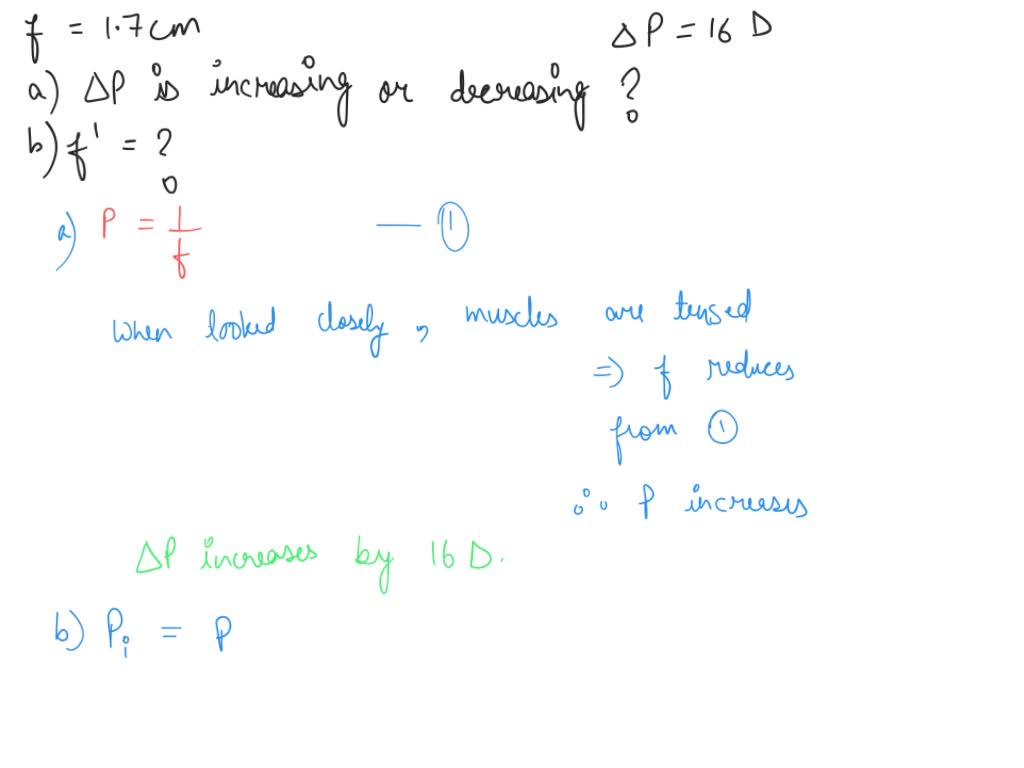 f = 1.7cm ΔP = 16 D
a) ΔP is increasing or decreasing ?
b) f' = ?
a) P = 1/f — ①
When looked closely, muscles are tensed
⇒ f reduces
from ①
∴ P increases
ΔP increases by 16 D.
b) Pi = P